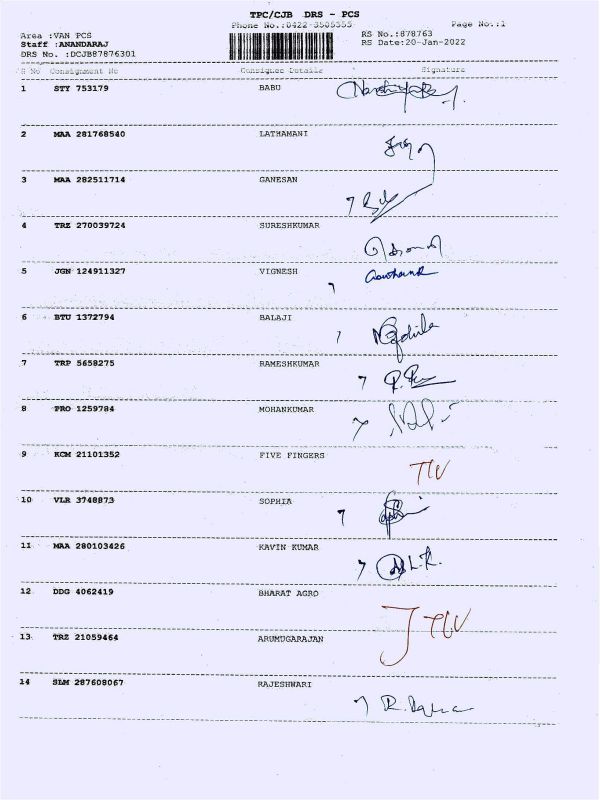 TPC/CJB DRS - PCS
Phone No.:0422-3505355 Page No.:1
Area :VAN PCS RS No.:878763
Staff :ANANDARAJ RS Date:20-Jan-2022
DRS No. :DCJB87876301
S No Consignment No Consignee Details Signature
1 STY 753179 BABU
2 MAA 281768540 LATHAMANI
3 MAA 282511714 GANESAN
4 TRZ 270039724 SURESHKUMAR
5 JGN 124911327 VIGNESH
6 BTU 1372794 BALAJI
7 TRP 5658275 RAMESHKUMAR
8 PRO 1259784 MOHANKUMAR
9 KCM 21101352 FIVE FINGERS
10 VLR 3748873 SOPHIA
11 MAA 280103426 KAVIN KUMAR
12 DDG 4062419 BHARAT AGRO
13 TRZ 21059464 ARUMUGARAJAN
14 SLM 287608067 RAJESHWARI